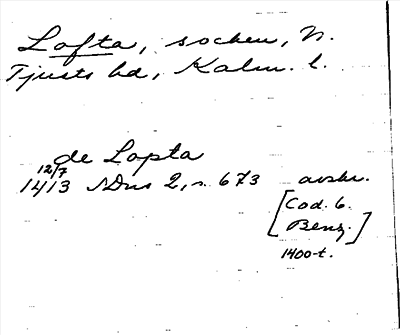 Lofta, socken, N.
Tjusts hd, Kalm. l.
de Lopta
12/7
1413 SDns 2, s. 673 avskr.
[Cod. 6.
Benz.]
1400-t.